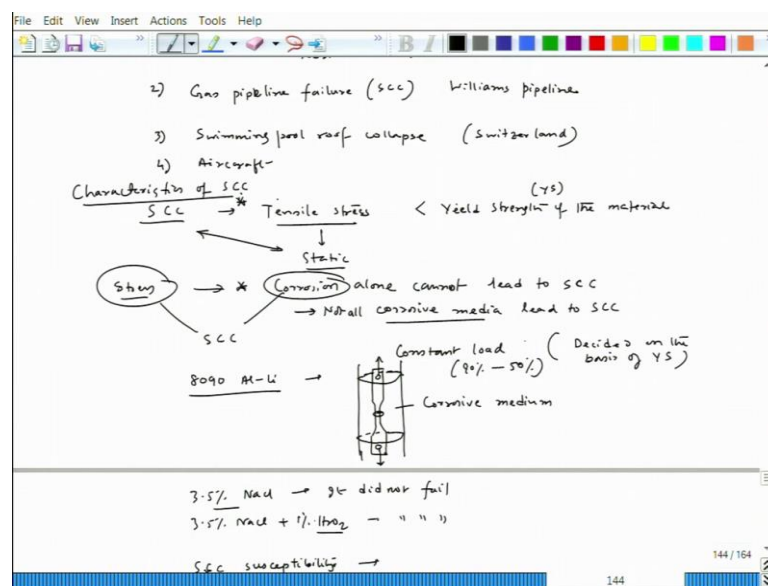 File Edit View Insert Actions Tools Help
2) Gas pipeline failure (SCC) Williams pipeline
3) Swimming pool roof collapse (Switzerland)
4) Aircraft
Characteristics of SCC
(YS)
SCC → * Tensile stress < Yield strength of the material
Static
Stress → * Corrosion alone cannot lead to SCC
→ Not all corrosive media lead to SCC
SCC
Constant load (Decided on the basis of YS)
(90% - 50%)
8090 Al-Li →
Corrosive medium
3.5% NaCl → It did not fail
3.5% NaCl + 1% H2O2 - " " "
SCC susceptibility →
144 / 164
144